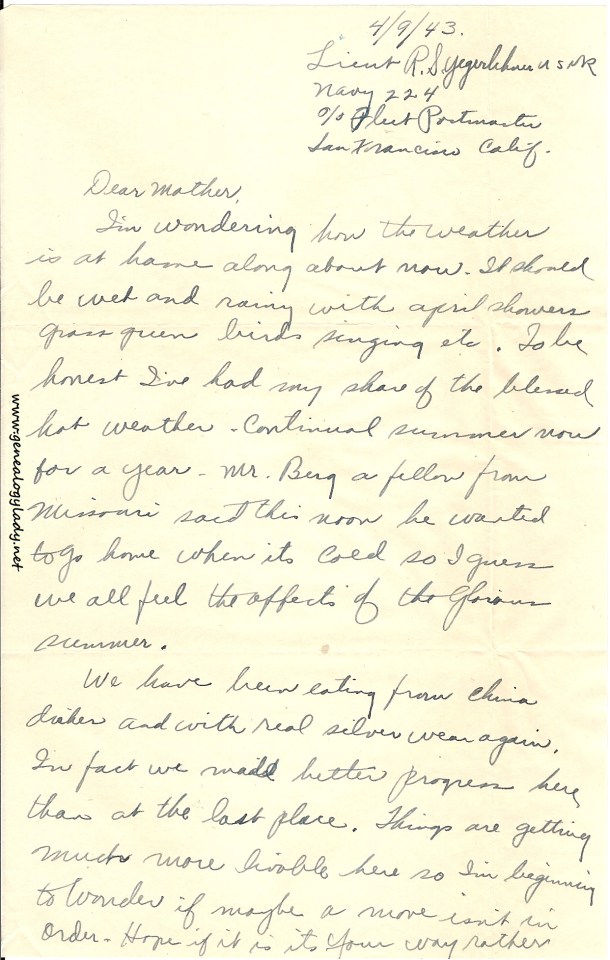 4/9/43.
Lieut R.S. Yegerlehner USNR
Navy 224
c/o Fleet Postmaster
San Francisco Calif.
Dear Mother,
I'm wondering how the weather
is at home along about now. It should
be wet and rainy with april showers
grass green birds singing etc. To be
honest I've had my share of the blessed
hot weather - Continual summer now
for a year - Mr. Berg a fellow from
Missouri said this noon he wanted
to go home when its cold so I guess
we all feel the affects of the Glorious
summer.
We have been eating from China
dishes and with real silver wear again.
In fact we made better progress here
than at the last place. Things are getting
much more livable here so I'm beginning
to wonder if maybe a move isn't in
order - Hope if it is its your way rather
www.genealogylady.net